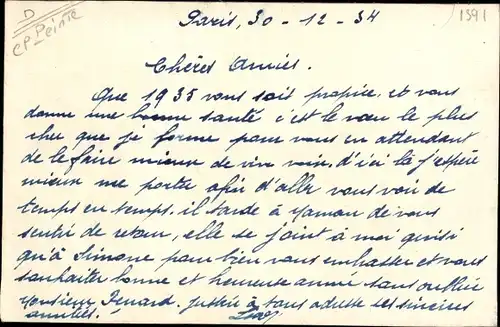 D
CP_Peinte
1591
Paris, 30 - 12 - 34
Chères Amies.
Que 1935 vous soit propice, et vous
donne une bonne santé c'est le vœu le plus
cher que je forme pour vous en attendant
de le faire mieux de vive voix, d'ici là j'espère
mieux me porter afin d'aller vous voir de
temps en temps. il tarde à Maman de vous
sentir de retour, elle se joint à moi ainsi
qu'à Simone pour bien vous embrasser et vous
souhaiter bonne et heureuse année sans oublier
Monsieur Penard. à tous adresse ses sincères
amitiés.